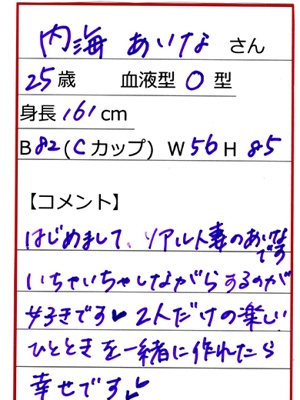 内海 あいな さん
25歳 血液型 O 型
身長 161 cm
B 82 (C カップ) W 56 H 85
【コメント】
はじめまして、リアル人妻のあいな
です
いちゃいちゃしながらするのが
好きです♥ 2人だけの楽しい
ひとときを一緒に作れたら
幸せです♥